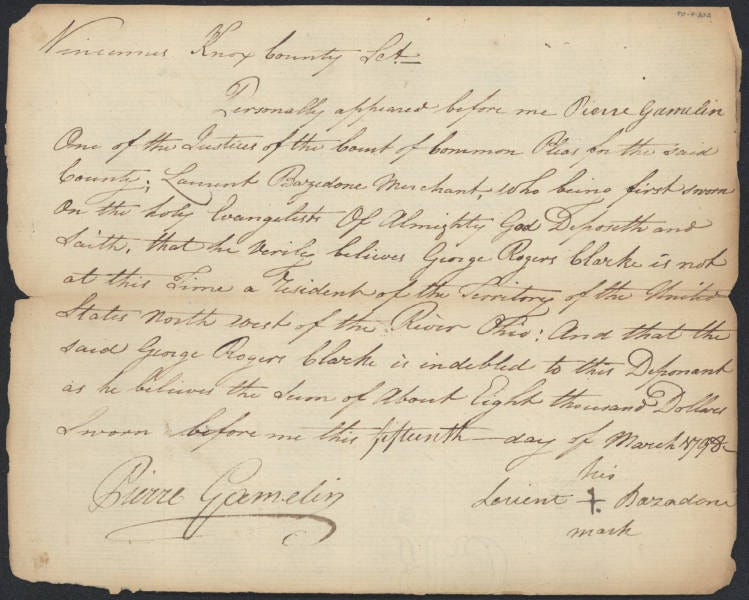 Vincennes Knox County Sct
Personally appeared before me Pierre Gamelin
One of the Justices of the Court of Common Pleas for the said
County; Laurent Bazedone Merchant, who being first sworn
On the holy Evangelists Of Almighty God Deposeth and
Saith, that he verily believes George Rogers Clarke is not
at this Time a Resident of the Territory of the United
States North west of the River Ohio: And that the
said George Rogers Clarke is indebted to this Deponant
as he believes the Sum of About Eight thousand Dollars
Sworn before me this fifteenth day of March 1798
his
Lorient + Bazadone
mark
Pierre Gamelin